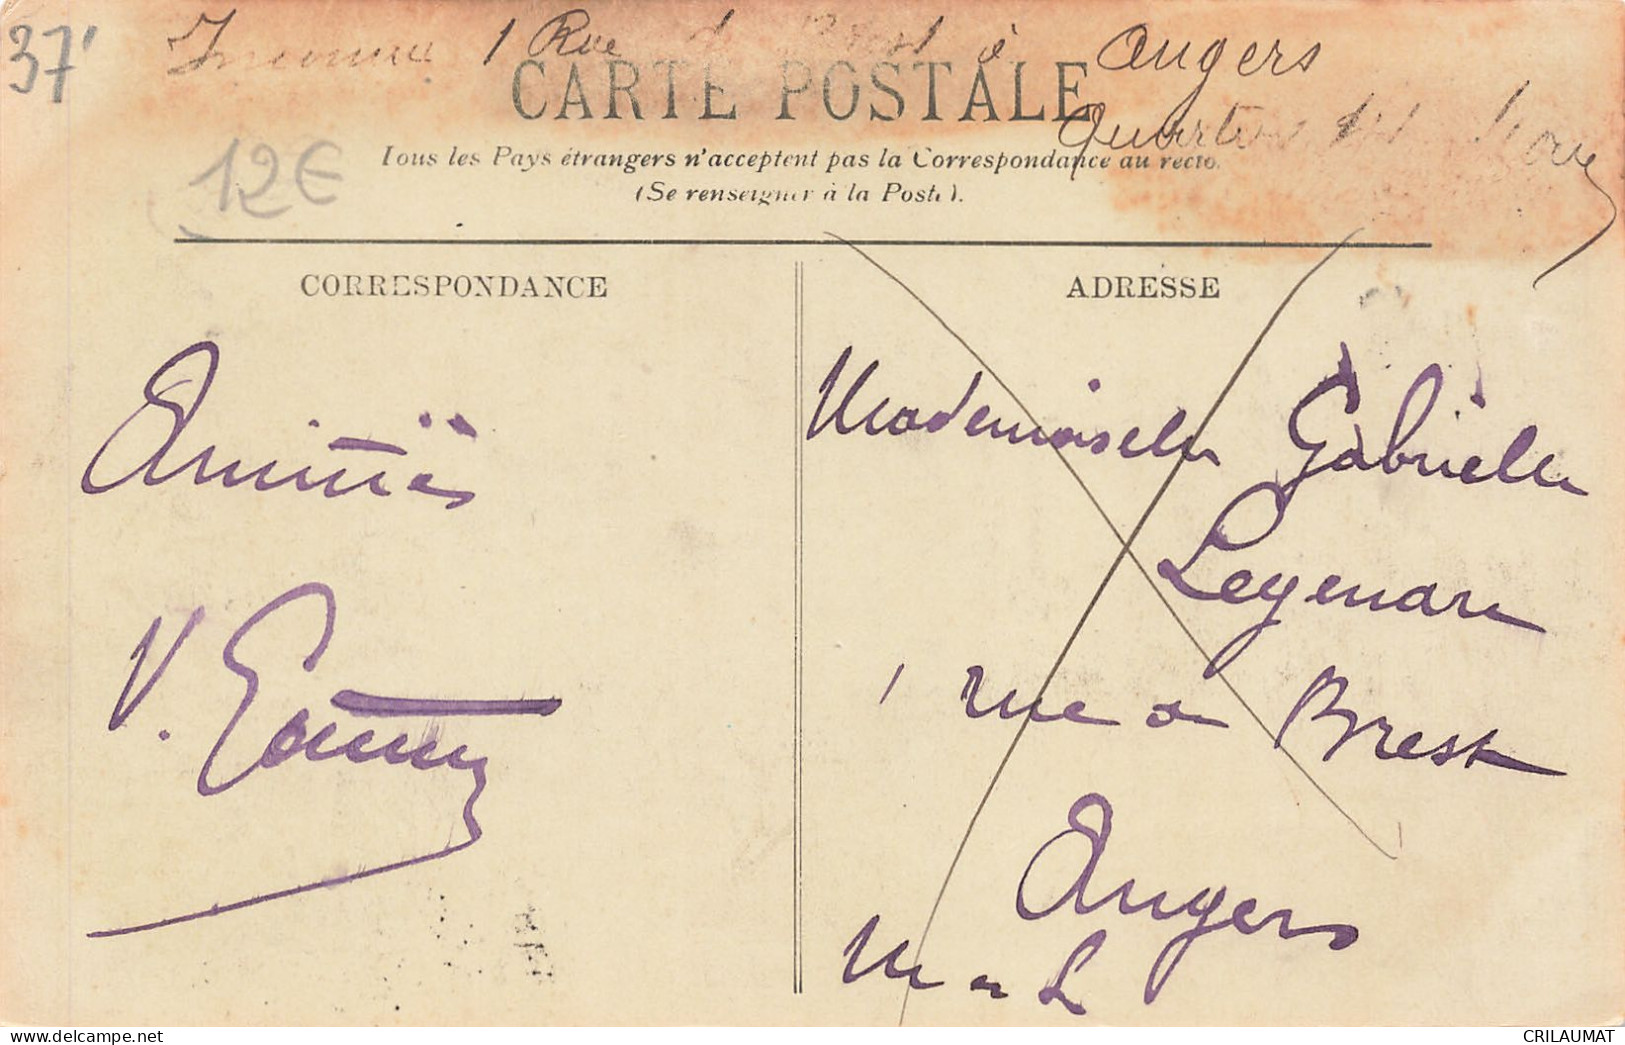 37'
Inconnue 1 Rue de Brest à Angers
CARTE POSTALE
12€
Tous les Pays étrangers n'acceptent pas la Correspondance au recto.
(Se renseigner à la Poste).
CORRESPONDANCE
ADRESSE
Amitiés
Mademoiselle Gabrielle
1 rue de Brest
Angers
M & L
delcampe.net
CRILAUMAT